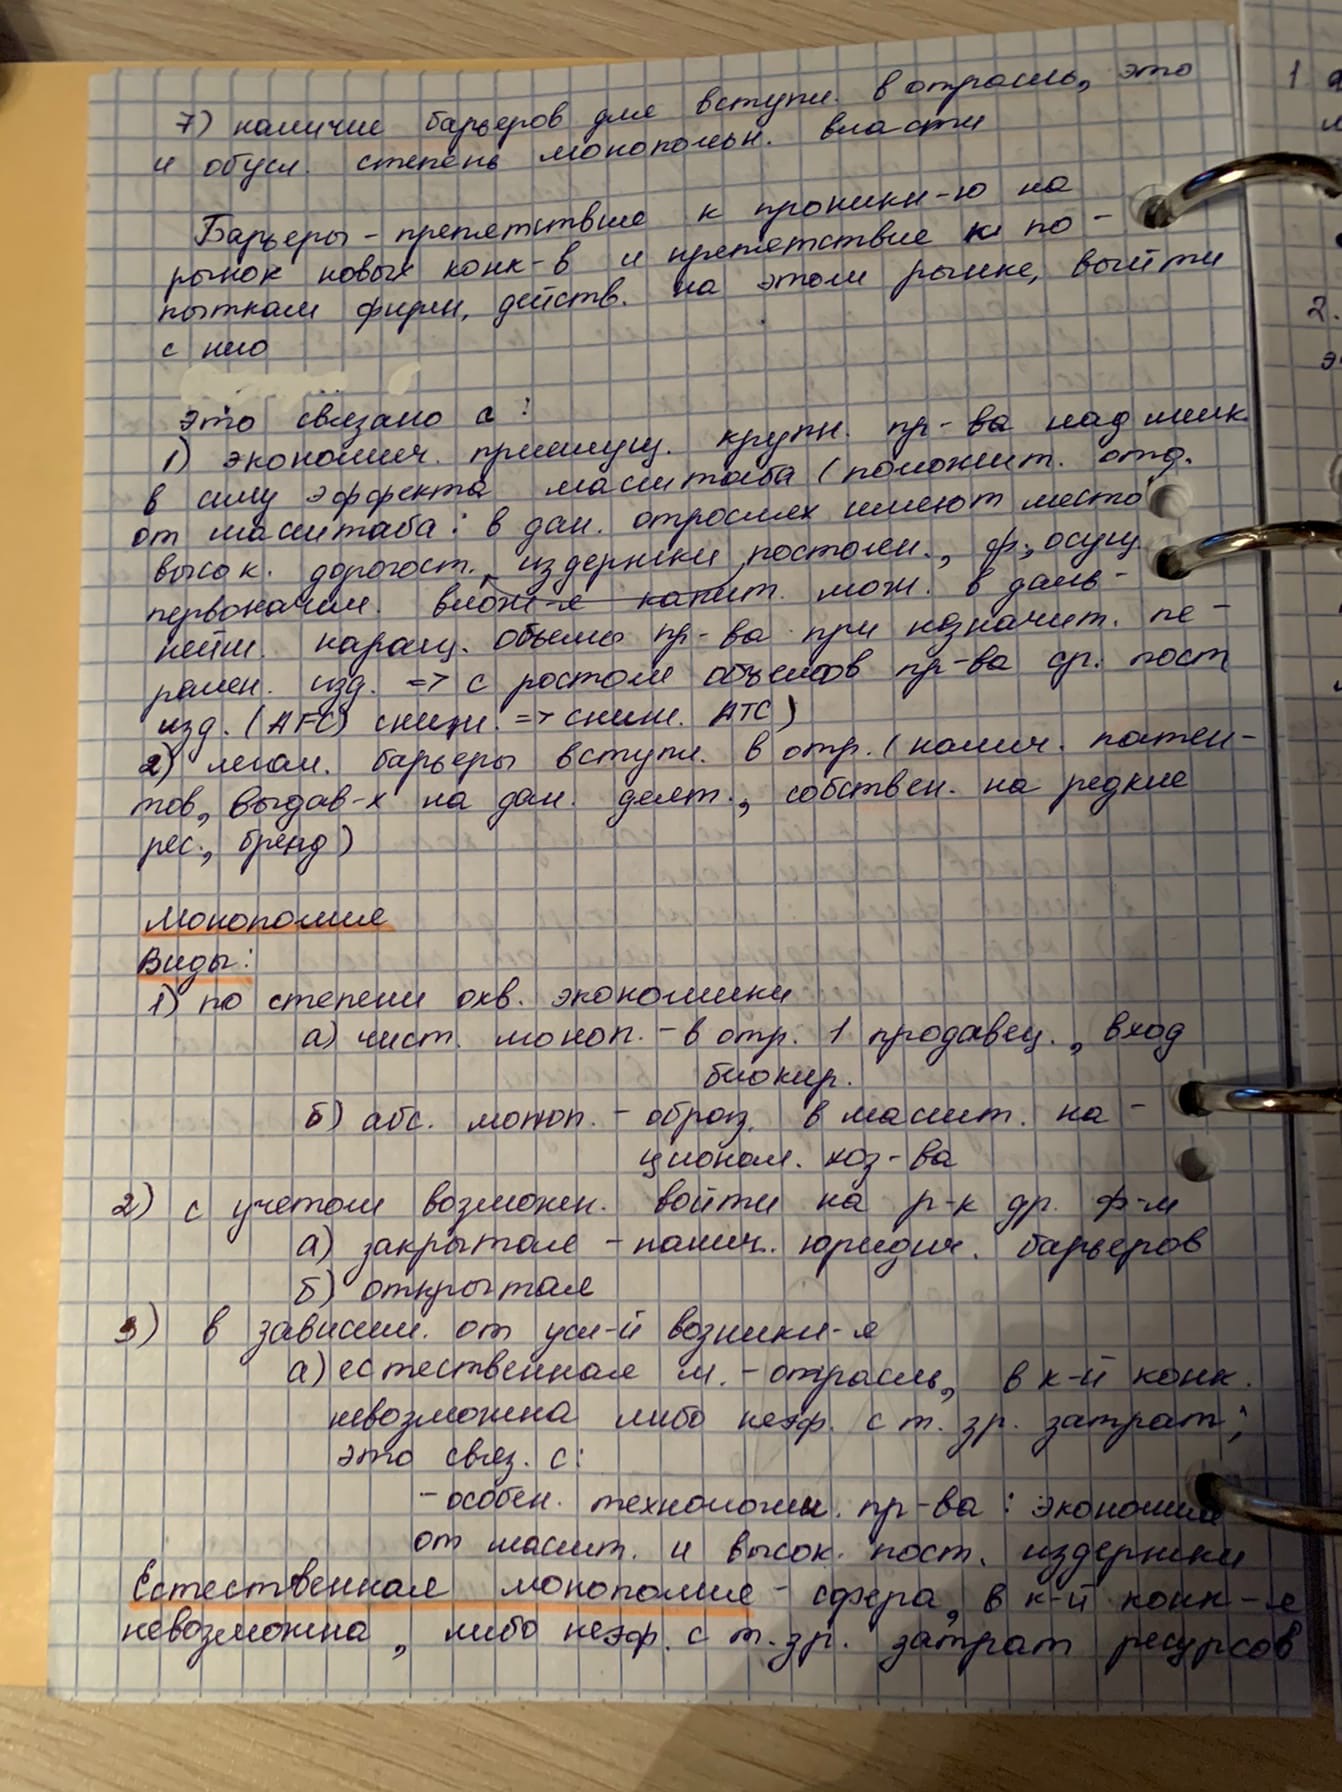 7) наличие барьеров для вступл. в отрасль, это
и обусл. степень монопольн. власти
Барьеры - препятствие к проникн-ю на
рынок новых конк-в и препятствие к по-
пыткам фирм, действ. на этом рынке, выйти
с него
Это связано с:
1) экономич. преимущ. крупн. пр-ва над мелк.
в силу эффекта масштаба (положит. отд.
от масштаба: в дан. отраслях имеют место
высок. дорогост. издержки постоян., ф., осущ.
первоначал. влож-я капит. мож. в даль-
нейш. наращ. объемы пр-ва при незначит. пе-
ремен. изд. => с ростом объемов пр-ва ср. пост
изд. (AFC) сниж. => сниж. ATC)
2) легал. барьеры вступл. в отр. (налич. патен-
тов, выдав-х на дан. деят., собствен. на редкие
рес., бренд)
Монополия
Виды:
1) по степени охв. экономики
а) чист. моноп. - в отр. 1 продавец., вход
блокир.
б) абс. моноп. - образ. в масшт. на-
ционал. хоз-ва
2) с учетом возможн. войти на р-к др. ф-м
а) закрытая - налич. юридич. барьеров
б) открытая
3) в зависим. от усл-й возникн-я
а) естественная м. - отрасль, в к-й конк.
невозможна либо неэф. с т. зр. затрат;
это связ. с:
- особен. технологии. пр-ва: экономия
от масшт. и высок. пост. издержки
Естественная монополия - сфера, в к-й конк-я
невозможна, либо неэф. с т. зр. затрат ресурсов
1
2.